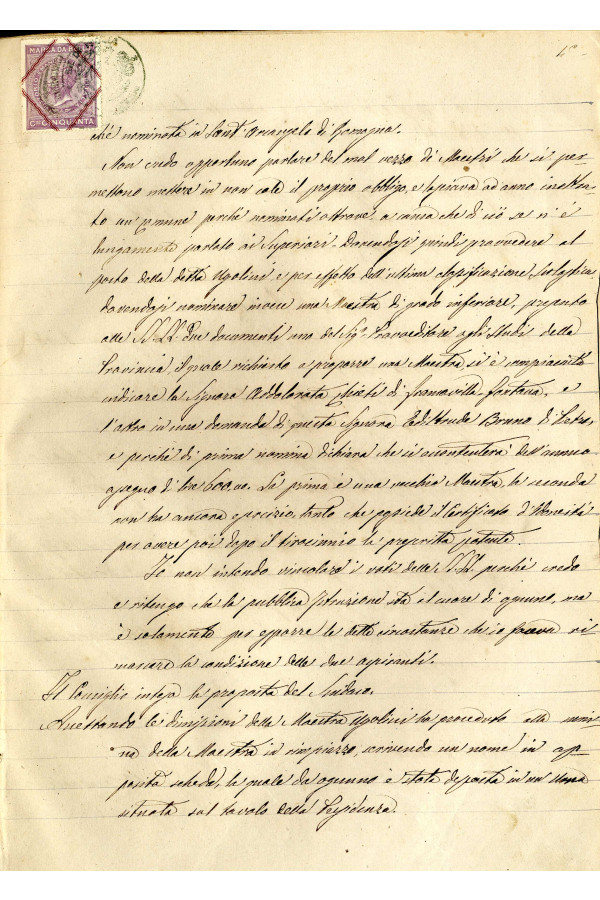 MARCA DA BOLLO
CMI CINQUANTA
chè nominata in Sant'Arcangelo di Romagna.
Non credo opportuno parlare del mal vezzo di Maestri che si per
mettono mettere in non cale il proprio obbligo, e lasciano ad anno inoltra
to un Comune perchè nominati altrove, a causa che di ciò se n'è
lungamente parlato ai Superiori. Dovendosi quindi provvedere al
posto della detta Ugolini e per effetto dell'ultima classificazione Scolastica
dovendosi nominare invece una Maestra di grado inferiore, presento
alle SS. LL. due documenti uno del Sigr. Provveditore agli Studi della
Provincia, il quale richiesto a proporre una Maestra si è compiaciuto
indicare la Signora Addolorata Chieti di Francavilla Fontana, e
l'altro in una domanda di questa Signora Editrude Bruno di
e perchè di prima nomina dichiara che si accontenterà dell'annuo
assegno di lire 600,00. La prima è una vecchia Maestra, la seconda
non ha ancora esercizio, tanto che possiede il Certificato d'Idoneità
per avere poi dopo il tirocinio la prescritta patente.
Io non intendo vincolare i voti delle SS. LL. perchè credo
e ritengo che la pubblica Istruzione sta al cuore di ognuno, ma
è solamente per esporre le dette circostanze che io faceva ri
marcare la condizione delle due aspiranti.
Il Consiglio intesa la proposta del Sindaco,
Accettando le dimissioni della Maestra Ugolini ha proceduto alla nomi
na della Maestra in rimpiazzo, scrivendo un nome in ap
posita scheda, la quale da ognuno è stata deposta in un' Urna
situata sul tavolo della Presidenza.